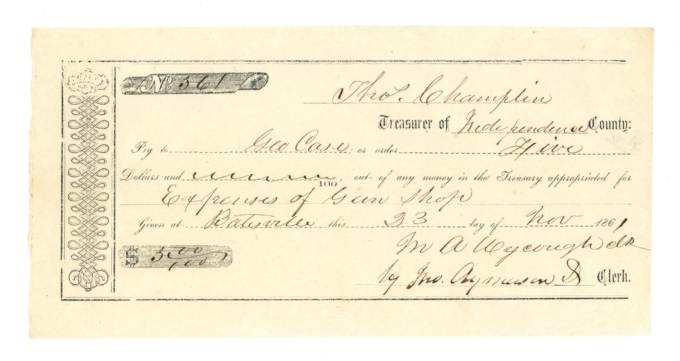 No 561
Thos. Champlin
Treasurer of Independence County:
Pay to Geo Case or order Five
Dollars and 100, out of any money in the Treasury appropriated for
Expenses of Gun Shop
Given at Batesville this 23 day of Nov 1861
$ 5 00/100
M A Wycough clk
by Jno. D Clerk.